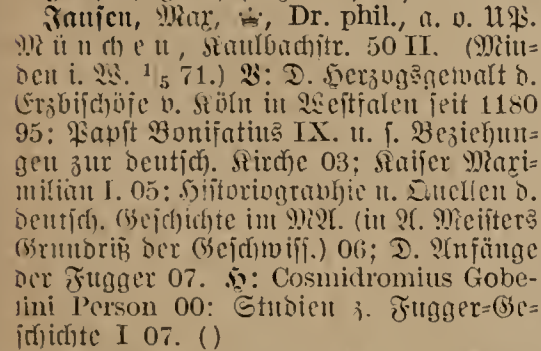 Jansen, Max, ♚, Dr. phil., a. o. UP.
München, Kaulbachstr. 50 II. (Min=
den i. W. 1/5 71.) V: D. Herzogsgewalt d.
Erzbischöfe v. Köln in Westfalen seit 1180
95; Papst Bonifatius IX. u. s. Beziehun=
gen zur deutsch. Kirche 03; Kaiser Maxi=
milian I. 05; Historiographie u. Quellen d.
deutsch. Geschichte im MA. (in A. Meisters
Grundriß der Geschwiss.) 06; D. Anfänge
der Fugger 07. H: Cosmidromius Gobe=
lini Person 00; Studien z. Fugger=Ge=
schichte I 07. ()